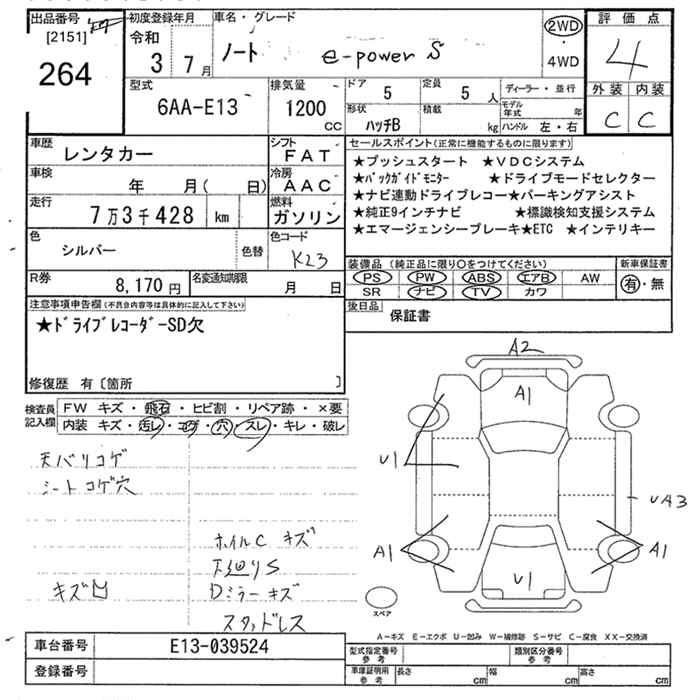 出品番号
[2151]
264
初度登録年月
令和
3 7月
車名・グレード
ノート e-power S
2WD
・
4WD
評価点
4
外装 内装
C C
型式
6AA-E13
排気量
1200
CC
ドア
5
定員
5 人
ディーラー・並行
モデル年式 年
形状
ハッチB
積載
kg
ハンドル 左・右
車歴
レンタカー
シフト
FAT
車検
年 月( 日)
冷房
AAC
走行
7万3千428 km
燃料
ガソリン
色
シルバー
色替
色コード
K23
R券
8,170円
名変通知期限
月 日
セールスポイント(正常に機能するものに限ります)
★プッシュスタート ★VDCシステム
★バックガイドモニター ★ドライブモードセレクター
★ナビ連動ドライブレコー★パーキングアシスト
★純正9インチナビ ★標識検知支援システム
★エマージェンシーブレーキ★ETC ★インテリキー
装備品(純正品に限り○をつけてください)
新車保証書
PS PW ABS エアB AW
SR ナビ TV カワ
有・無
後日品
保証書
注意事項申告欄(不具合内容等は具体的に記入して下さい)
★ドライブレコーダーSD欠
修復歴 有〔箇所 〕
検査員
記入欄
FW キズ・飛石・ヒビ割・リペア跡・×要
内装 キズ・汚レ・コゲ・穴・スレ・キレ・破レ
天バリコゲ
シートコゲ穴
ホイルC キズ
天廻りS
キズ凹
Dミラーキズ
スタッドレス
A2
A1
U1
UA3
A1
A1
U1
スペア
A-キズ E-エクボ U-凹み W-補修跡 S-サビ C-腐食 XX-交換済
車台番号
E13-039524
登録番号
型式指定番号
参考
類別区分番号
参考
車庫証明用
参考
長さ cm
幅 cm
高さ cm